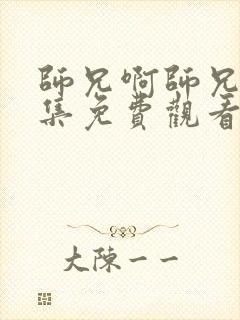 師兄啊師兄
集免費觀看
大陳一一